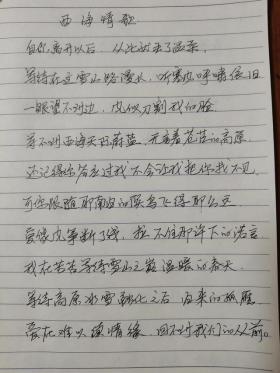 西海情歌
自你离开以后，从此就丢了温柔
等待在这雪山路漫长，听寒风呼啸依旧
一眼望不到边，风似刀割我的脸
等不到西海天际蔚蓝，无言着苍茫的高原
还记得你答应过我不会让我把你找不见
可你跟随那南归的候鸟飞得那么远
爱像风筝断了线，拉不住你许下的诺言
我在苦苦等待雪山之巅温暖的春天
等待高原冰雪融化之后归来的孤雁
爱在难以续情缘，回不到我们的从前。